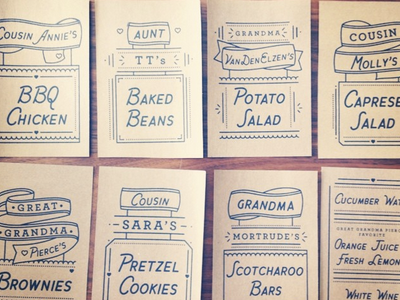 COUSIN ANNIE'S
BBQ
CHICKEN
AUNT
TT's
BAKED
BEANS
GRANDMA
VANDENELZEN'S
POTATO
SALAD
COUSIN
MOLLY'S
CAPRESE
SALAD
GREAT
GRANDMA
PIERCE'S
BROWNIES
COUSIN
SARA'S
PRETZEL
COOKIES
GRANDMA
MORTRUDE'S
SCOTCHAROO
BARS
CUCUMBER WAT
GREAT GRANDMA PIERC
FAVORITE
ORANGE JUICE
FRESH LEMON
WHITE WINE